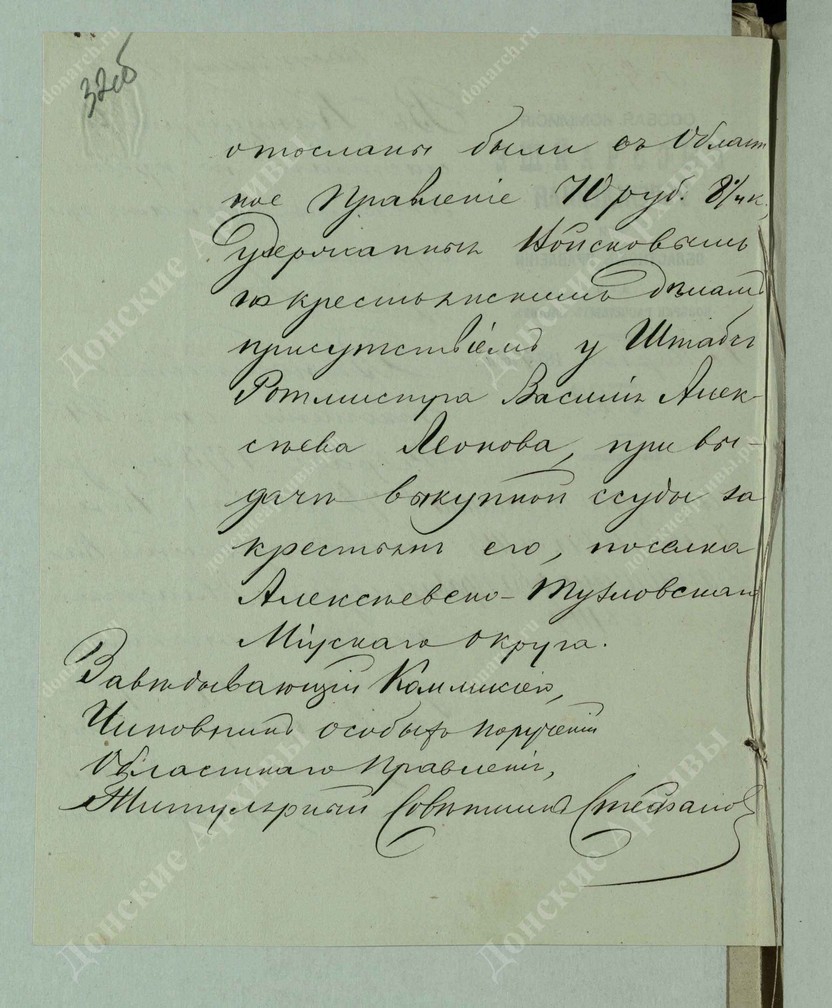 32об
отосланы были въ Област
ное Правленiе 70 руб. 8¼ к.,
удержанныя Войсковымъ
по крестьянскимъ дѣламъ
присутствiемъ у Штабъ
Ротмистра Василiя Алек-
сѣева Леонова, при вы-
дачѣ выкупной ссуды за
крестьянъ его, поселка
Алексѣевско-Тузловскаго
Мiускаго округа.
Завѣдывающiй Коммисiею,
Чиновникъ особыхъ порученiй
Областнаго Правленiя,
Титулярный Совѣтникъ Стефановъ